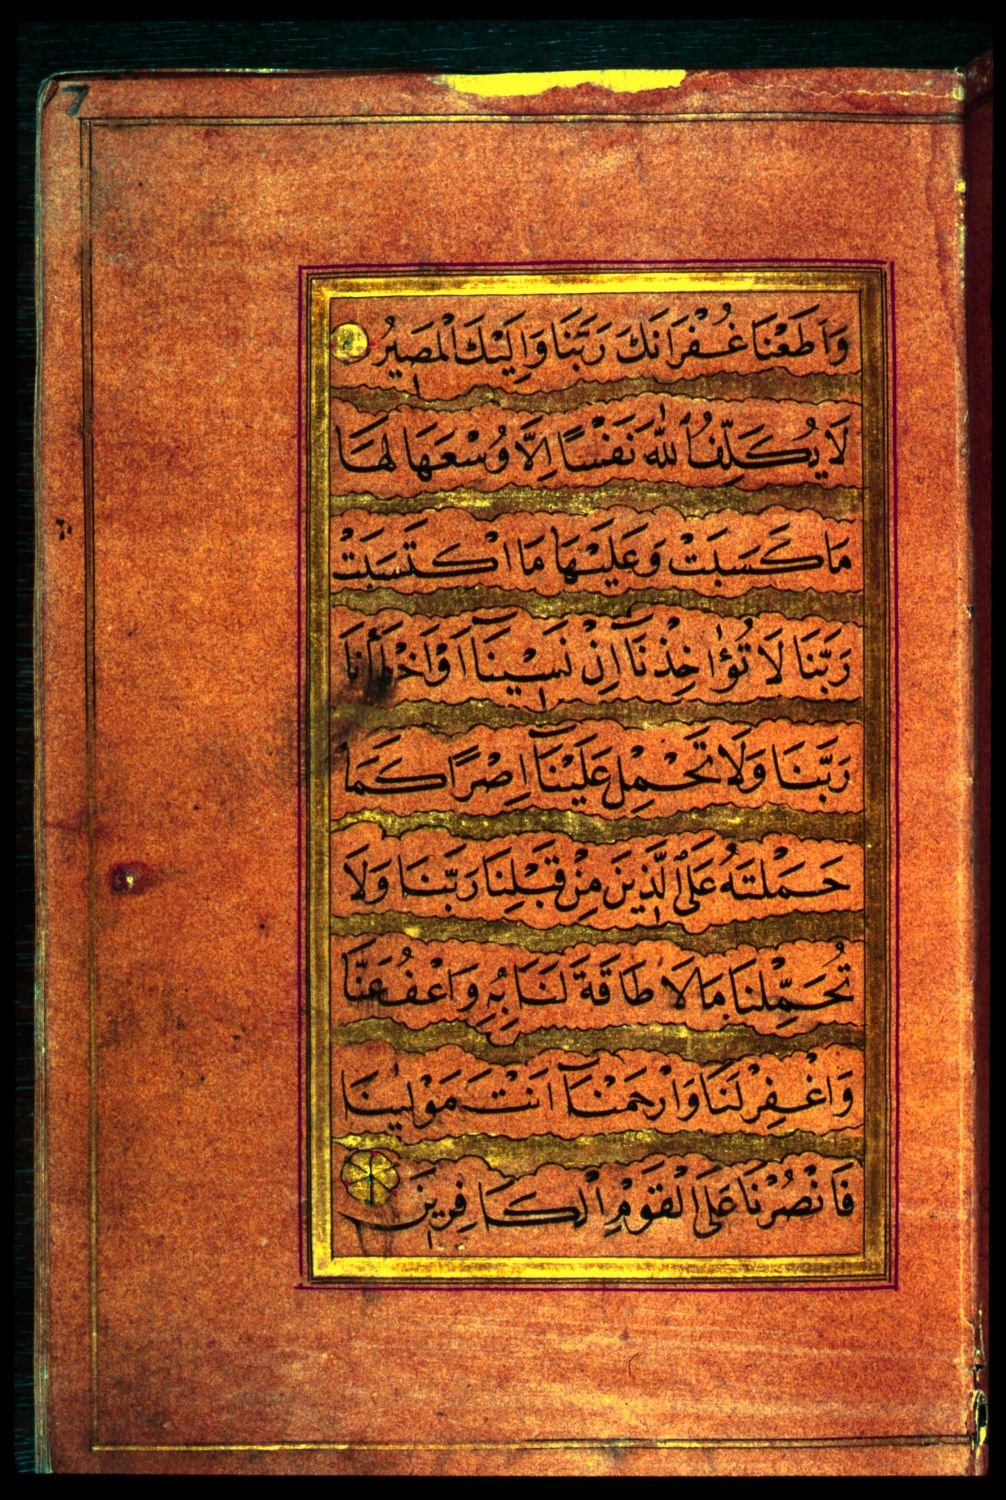 7
وَاَطَعْنَا غُفْرَانَكَ رَبَّنَا وَاِلَيْكَ الْمَصِيرُ
لَا يُكَلِّفُ اللّٰهُ نَفْسًا اِلَّا وُسْعَهَا لَهَا
مَا كَسَبَتْ وَعَلَيْهَا مَا اكْتَسَبَتْ
رَبَّنَا لَا تُؤَاخِذْنَٓا اِنْ نَسِينَٓا اَوْ اَخْطَأْنَا
رَبَّنَا وَلَا تَحْمِلْ عَلَيْنَٓا اِصْرًا كَمَا
حَمَلْتَهُ عَلَى الَّذِينَ مِنْ قَبْلِنَا رَبَّنَا وَلَا
تُحَمِّلْنَا مَا لَا طَاقَةَ لَنَا بِهِ وَاعْفُ عَنَّا
وَاغْفِرْ لَنَا وَارْحَمْنَٓا اَنْتَ مَوْلٰينَا
فَانْصُرْنَا عَلَى الْقَوْمِ الْكَافِرِينَ